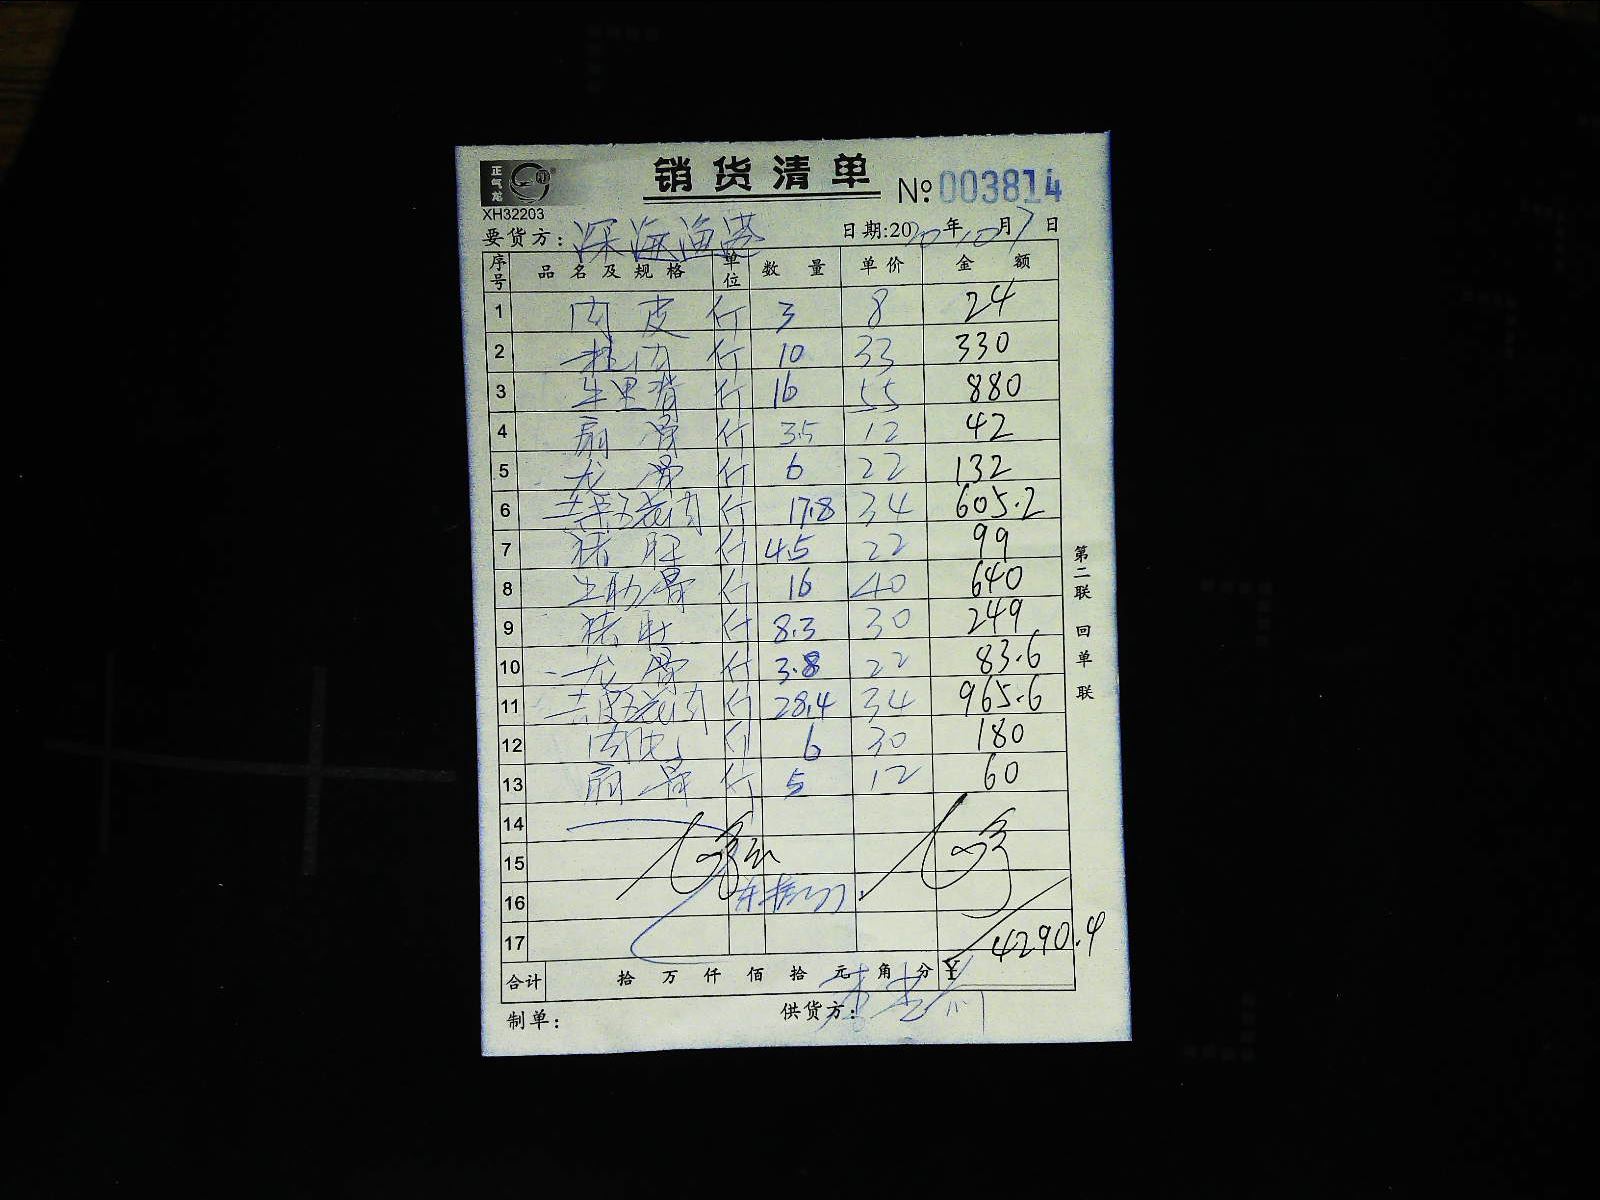 正气龙
销货清单
№ 003814
XH32203
要货方: 深海渔港 日期:2020年10月7日
序号 品名及规格 单位 数量 单价 金额
1 肉皮 斤 3 8 24
2 肉 斤 10 33 330
3 牛里脊 斤 16 55 880
4 扇骨 斤 3.5 12 42
5 龙骨 斤 6 22 132
6 五花肉 斤 17.8 34 605.2
7 猪肝 斤 4.5 22 99
8 肋骨 斤 16 40 640
9 猪肚 斤 8.3 30 249
10 龙骨 斤 3.8 22 83.6
11 五花肉 斤 28.4 34 965.6
12 肉 斤 6 30 180
13 扇骨 斤 5 12 60
14
15
16
17
4290.4
合计 拾 万 仟 佰 拾 元 角 分 ¥
制单: 供货方:
第二联 回单联